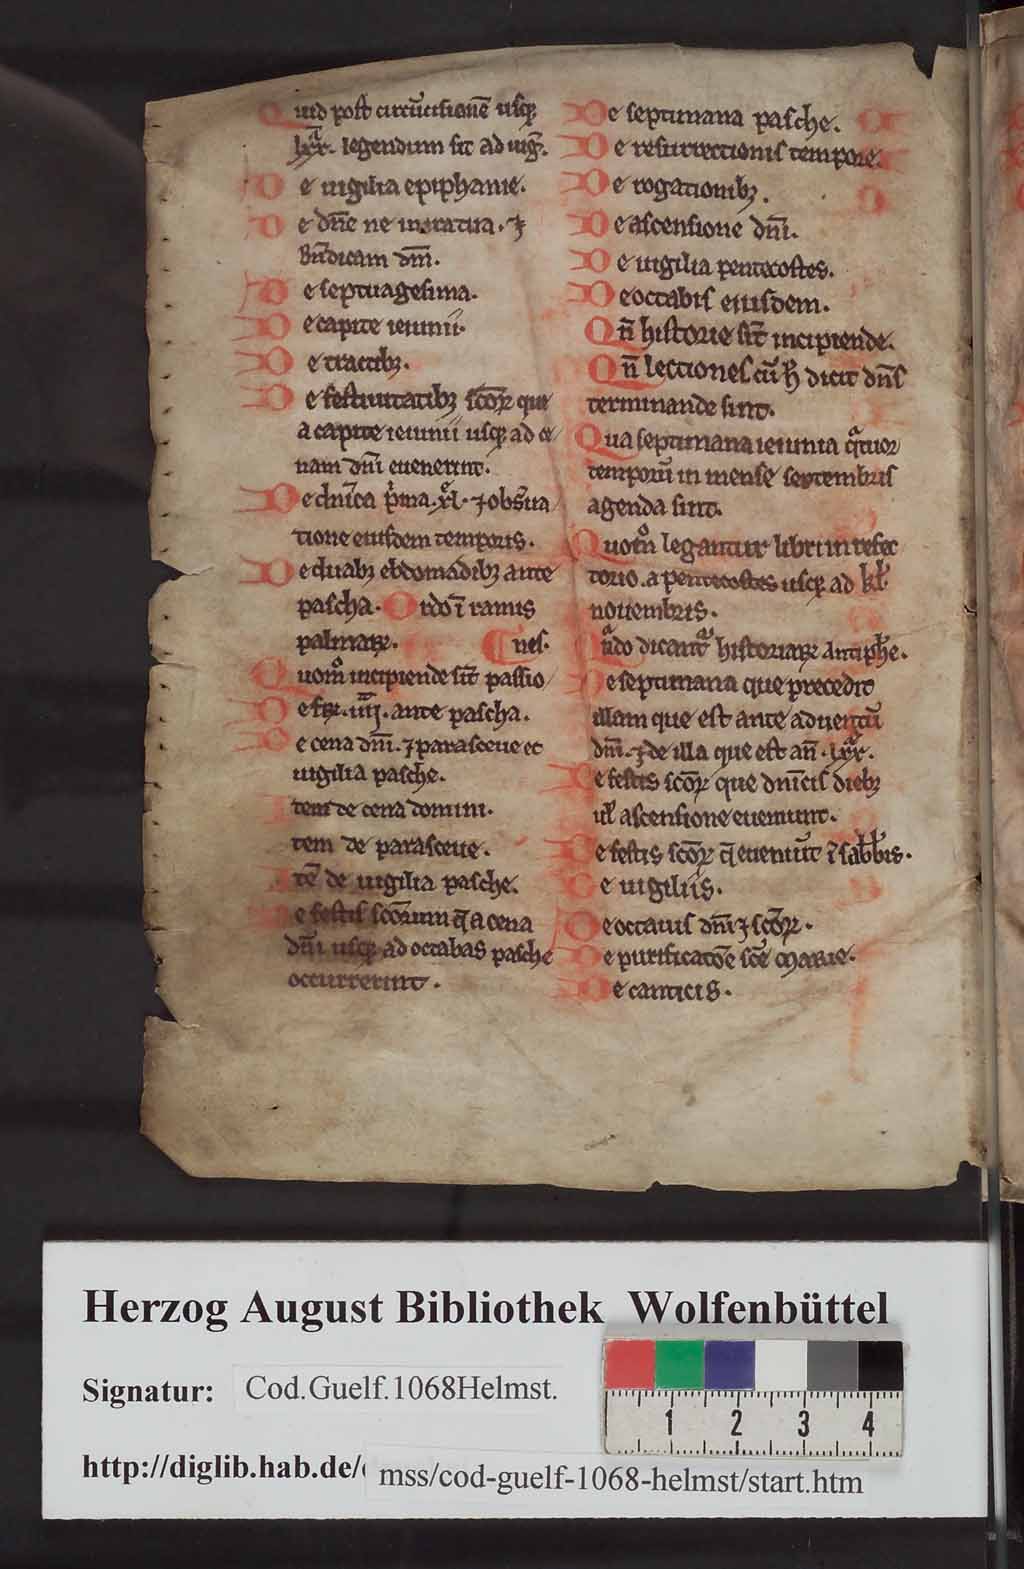 Quid post circūcisionē usqꝫ
lxxͣ. legendum sit ad uig̅.
De uigilia epiphanie.
De dn̅e ne in ira tua. ⁊
bn̅dicam dn̅m.
De septuagesima.
De capite ieiunii.
De tractibꝫ.
De festiuitatibꝫ sc̅oꝝ que
a capite ieiunii usqꝫ ad ce/
nam dn̅i euenerint.
De dn̅ica p̍ma .xl. ⁊ obs̅ua/
tione eiusdem temporis.
De duabꝫ ebdomadibꝫ ante
pascha. Ordo ī ramis
palmaꝝ. nes.
Quom̊ incipiende st̅ passio/
De fer. iiij. ante pascha.
De cena dn̅i. ⁊ parasceue et
uigilia pasche.
Item de cena domini.
Item de parasceue.
Itē de uigilia pasche.
De festis sc̅orum q̄ a cena
dn̅i usqꝫ ad occabas pasche
occurrerint.
De septimana pasche.
De resurrectionis tempore.
De rogationibꝫ.
De ascensione dn̅i.
De uigilia pentecostes.
De occabis eiusdem.
Qn̅ historie st̅ incipiende.
Qn̅ lectiones cū h̅ dicit dn̅s
terminande sint.
Qua septimana ieiunia qͣtuor
temporū in mense septembris
agenda sint.
Quom̊ legantur libri in refec
torio. a pentecostes usqꝫ ad kl̅.
nouembris.
Qͣndo dicant᷑ historiaꝝ antiph̅e.
De septimana que precedit
illam que est ante aduentū
dn̅i. ⁊ de illa que est an̅. lxxͣ.
De festis sc̅oꝝ que dn̅icis diebꝫ
ul̅ ascensione eueniunt.
De festis sc̅oꝝ q̄ eueniūt ī sabb̅is.
De uigiliis.
De occauis dn̅i ⁊ sc̅oꝝ.
De purificatōe sc̅e marie.
De canticis.
Herzog August Bibliothek Wolfenbüttel
Signatur: Cod.Guelf.1068Helmst.
1 2 3 4
http://diglib.hab.de/ mss/cod-guelf-1068-helmst/start.htm